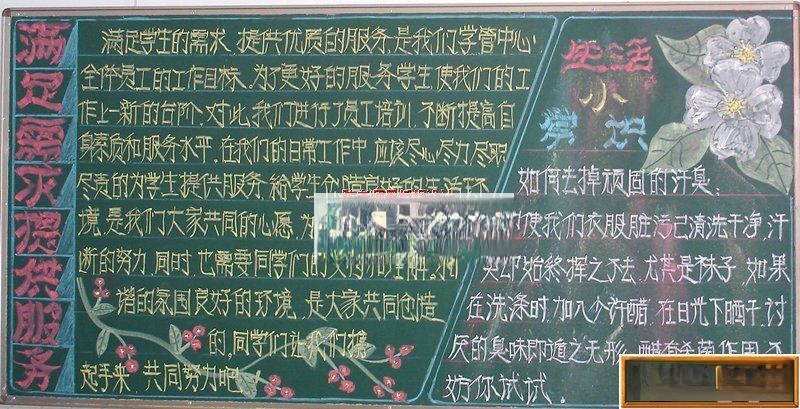 满足需求提供服务
满足学生的需求 提供优质的服务,是我们学管中心
全体员工的工作目标。为了更好的服务学生,使我们的工
作上一新的台阶,对此,我们进行了员工培训,不断提高自
身素质和服务水平,在我们的日常工作中,应该尽心尽力尽职
尽责的为学生提供服务,给学生
境,是我们大家共同的心愿,为
断的努力,同时,也需要同学们的
谐的氛围良好的环境,是大家共同创造
的,同学们让我们携
起手来 共同努力吧!
生活
小
常识
如何去掉顽固的汗臭:
使我们衣服脏污已清洗干净,汗
臭却始终挥之不去,尤其是袜子,如果
在洗涤时,加入少许醋,在日光下晒干,讨
厌的臭味即遁之无形,醋有杀菌作用,不
妨你试试.